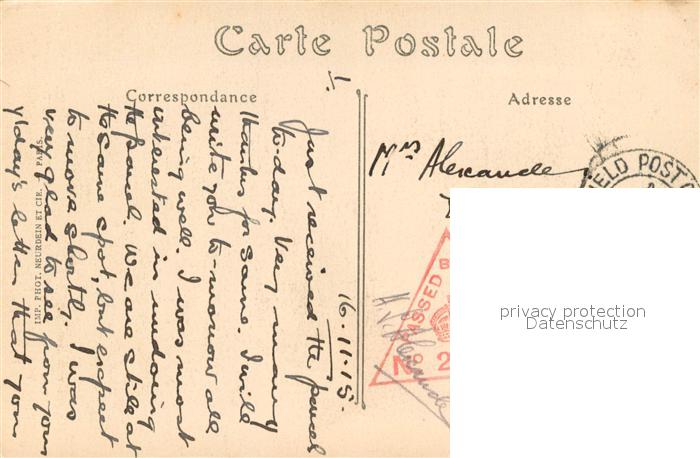 Carte Postale
Correspondance
Adresse
16.11.15.
Just received the parcel
to-day. Very many
thanks for same. I will
write you to-morrow all
being well. I was most
interested in undoing
the parcel. We are still at
the same spot, but expect
to move shortly. I was
very glad to see from your
y'day's letter that your
Mrs Alexander
FIELD POST O
PASSED B
No 2
H.V. Alexander
IMP. PHOT. NEURDEIN ET CIE. PARIS.
privacy protection
Datenschutz